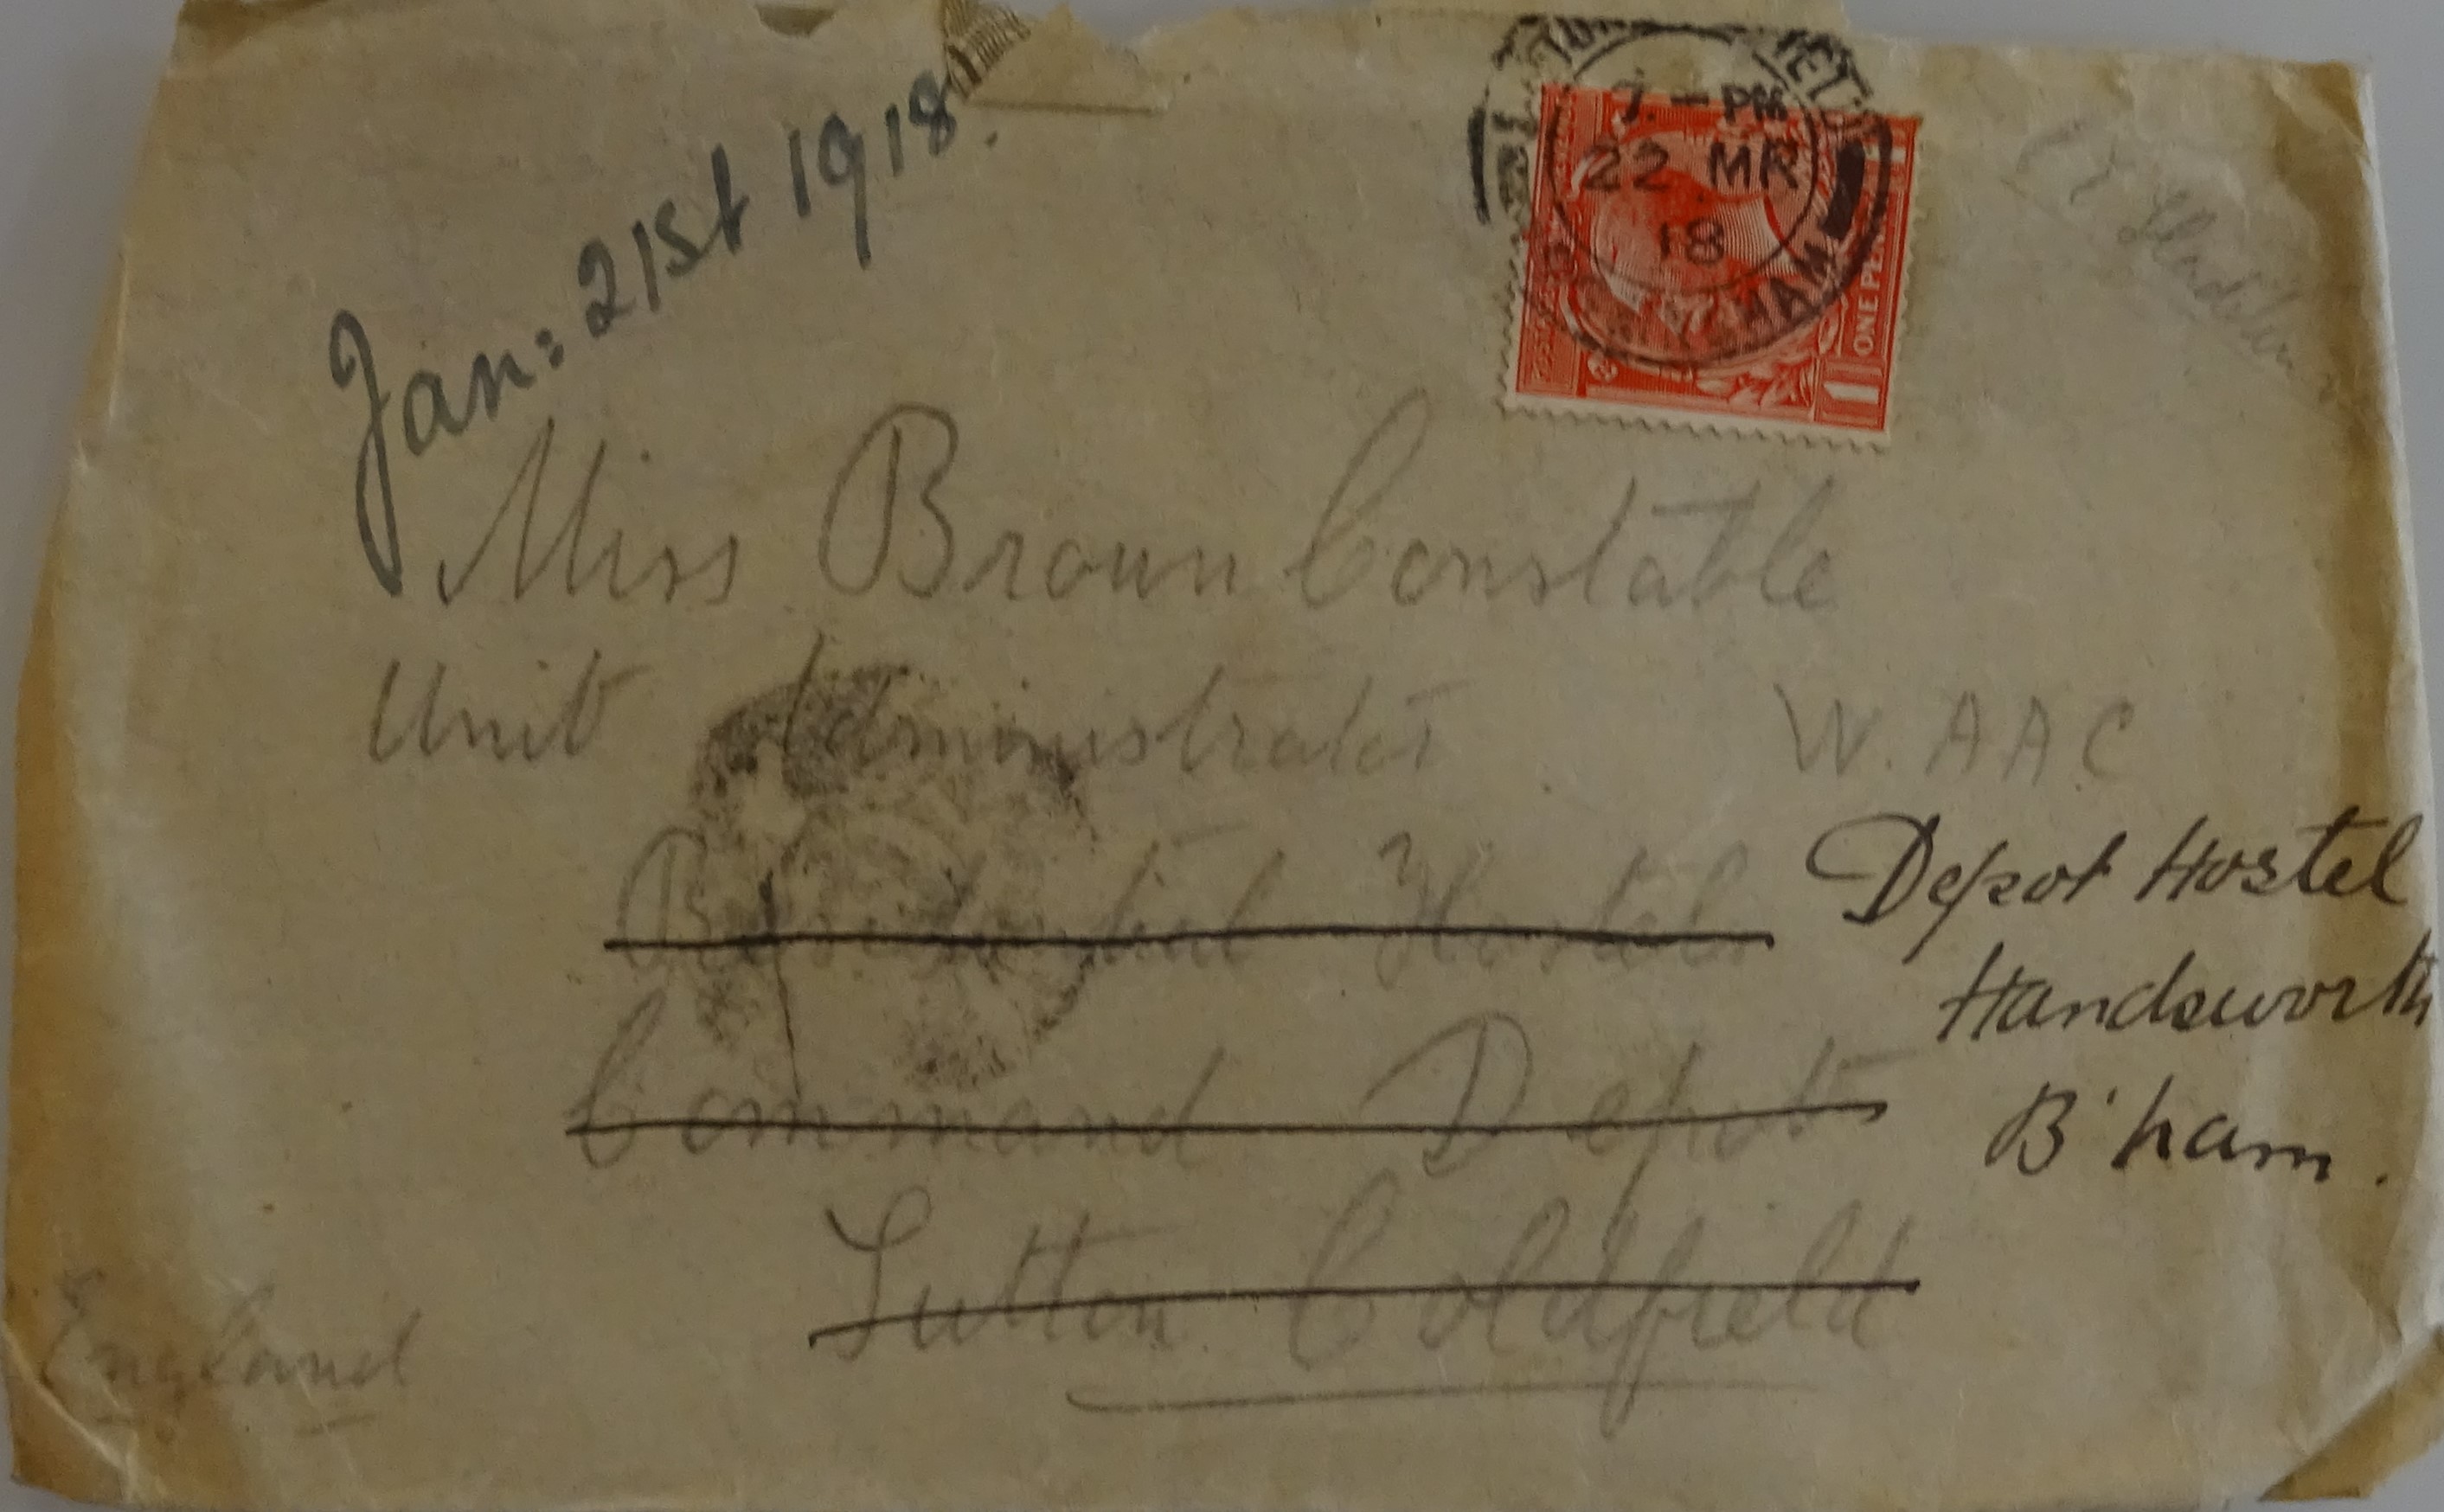 Jan: 21st 1918.
7 - PM
22 MR
18
ONE PENNY
1
Miss Brown Constable
Unit Administrator W. A A C
Residential Hostel
Depot Hostel
Handsworth
B'ham.
Command Depot
Sutton Coldfield
England